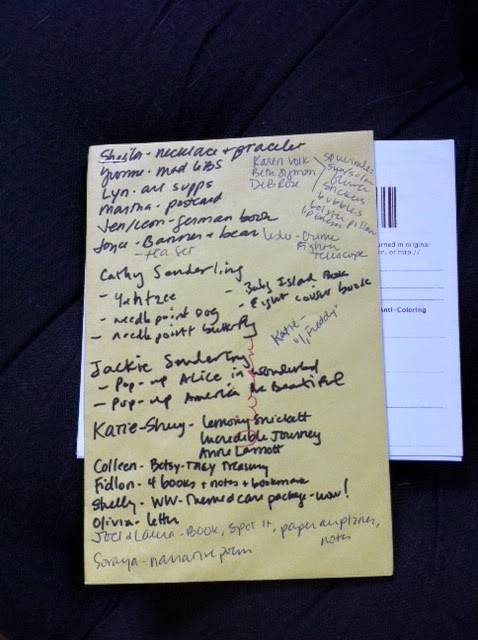 Sheila - necklace + bracelet
Yvonne - mad libs
Lyn - art supps
Martha - postcard
Jen/Leon - German book
Joyce - Banner + bear
- teaser
Karen Volk
Beth
Deb Rose
squirrels
flower
stickers
bubbles
bolster pillow
lip balm
Lesley - Crime
Fighter
Telescope
Cathy Sonderling
- Yahtzee
- needle point dog
- needle point butterfly
- Baby Island Book
- Eight cousins book
Katie -
"I, Freddy"
Jackie Sonderling
- Pop-up Alice in Wonderland
- Pop-up America the Beautiful
Katie-Shug - Lemony Snickett
Incredible Journey
Anne Lamott
Colleen - Betsy-Tacy Treasury
Fidlon - 4 books + notes + bookmark
Shelly - WW-Themed care package - wow!
Olivia - letter
Joel & Laura - Book, Spot It, paper airplanes,
notes
Soraya - narrative poem
urned in original
m, or http://
Anti-Coloring